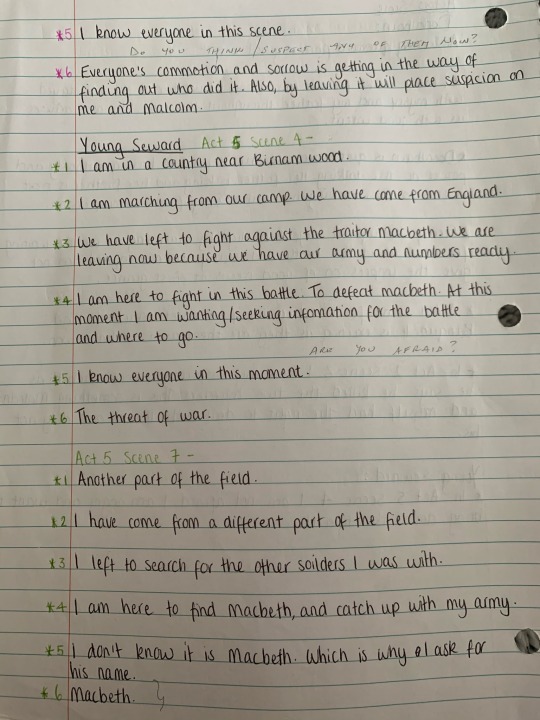 *5 I know everyone in this scene.
DO YOU THINK / SUSPECT ANY OF THEM NOW?
*6 Everyone's commotion and sorrow is getting in the way of
finding out who did it. Also, by leaving it will place suspicion on
me and Malcolm.
Young Seward Act 5 Scene 4 -
*1 I am in a country near Birnam wood.
*2 I am marching from our camp. We have come from England.
*3 We have left to fight against the traitor macbeth. We are
leaving now because we have our army and numbers ready.
*4 I am here to fight in this battle. To defeat macbeth. At this
moment I am wanting/seeking infomation for the battle
and where to go.
ARE YOU AFRAID?
*5 I know everyone in this moment.
*6 The threat of war.
Act 5 Scene 7 -
*1 Another part of the field.
*2 I have come from a different part of the field.
*3 I left to search for the other soilders I was with.
*4 I am here to find Macbeth, and catch up with my army.
*5 I don't know it is Macbeth. Which is why I ask for
his name.
*6 Macbeth.